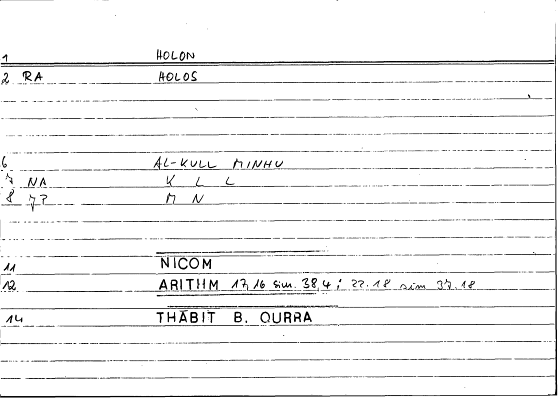 1 HOLON
2 RA HOLOS
6 AL-KULL MINHU
7 NA K L L
8 M N
11 NICOM
12 ARITHM 17,16 sim. 38,4; 22.18 sim 37.18
14 THĀBIT B. QURRA